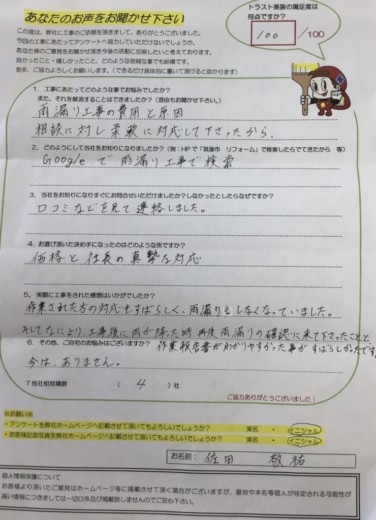 あなたのお声をお聞かせ下さい
トラスト美装の満足度は
何点ですか？
100 /100
この度は、弊社に工事のご依頼を頂きまして、ありがとうございました。
今回の工事にあたってアンケートへ協力していただけないでしょうか。
あなた様のご意見をお聞かせ頂き今後の活動に反映したいと考えております。
良かったこと・嬉しかったこと、どのような些細な事でも結構です。
是非、ご協力よろしくお願いします。（できるだけ具体的に書いて頂けると助かります）
1．工事にあたってどのような事でお悩みでしたか？
また、それを解消することはできましたか？（理由もお聞かせ下さい。）
雨漏り工事の費用と原因
相談に対し柔軟に対応して下さったから.
2．どのようにして当社をお知りになりましたか？（例：HPで「筑後市　リフォーム」で検索したらでてきたから　等）
Googleで雨漏り工事で検索
3．当社をお知りになりすぐにお問合せいただけましたか？しなかったとしたらなぜですか？
口コミなどを見て連絡しました。
4．お選び頂いた決め手になったのはどのような所ですか？
価格と社長の真摯な対応
5．実際に工事をされた感想はいかがでしたか？
作業された方の対応もすばらしく、雨漏りもしなくなっていました。
そしてなにより、工事後に雨が降った時 再度雨漏りの確認に来て下さったことと
作業報告書がわかりやすかった事がすばらしかったです
6．その他、ご自宅のお悩みはございますか？
今は、ありません。
7 当社相見積数　（　4　）社
ご協力ありがとうございました！
※お願い※
・アンケートを弊社ホームページへ記載させて頂いてもよろしいでしょうか？　実名　・　イニシャル
・お客様記念写真を弊社ホームページへ記載させて頂いてもよろしいでしょうか？　実名　・　イニシャル
お名前：　佐田　敬祐
個人情報保護について
お客様より頂いたご意見はホームページ等に掲載させて頂く場合がございますが、番地や本名等個人が特定される可能性が
高い情報につきましては一切口外及び掲載致しませんのでご安心下さい。